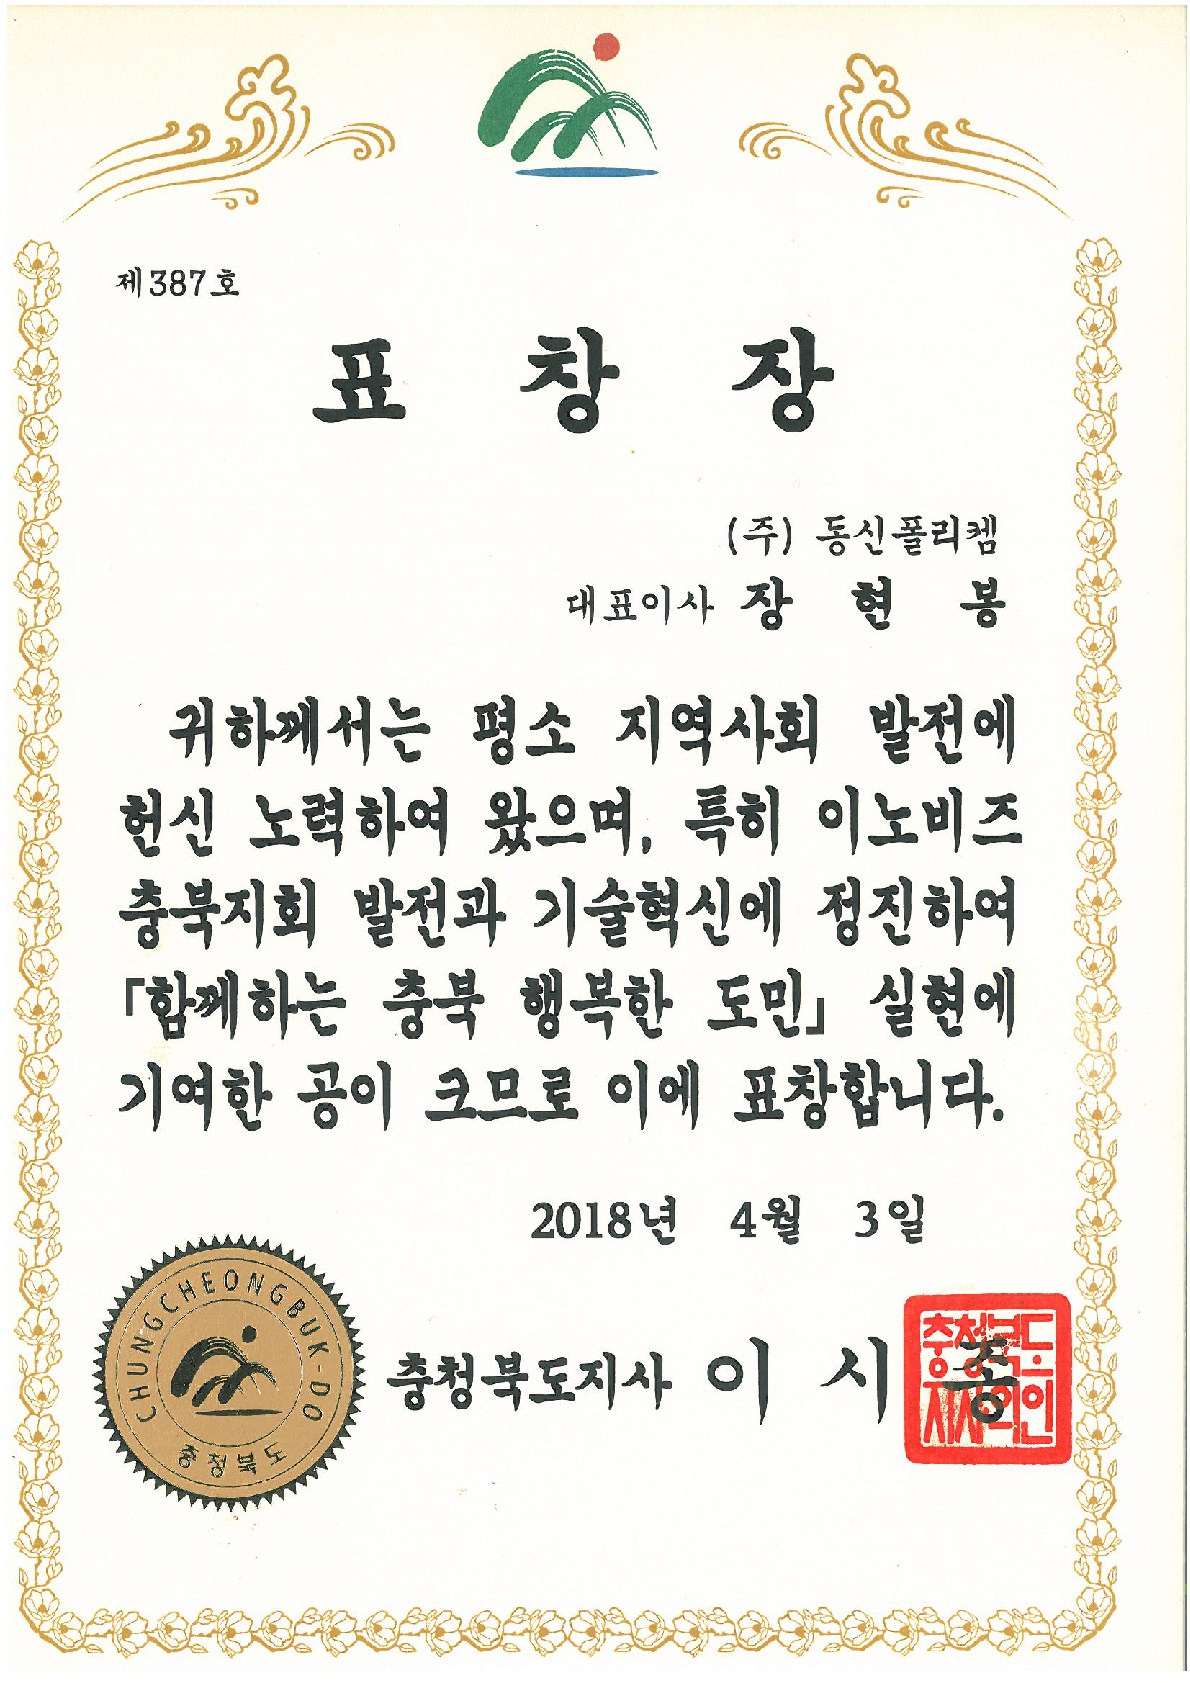 제387호
표 창 장
(주) 동신폴리켐
대표이사 장 현 봉
귀하께서는 평소 지역사회 발전에
헌신 노력하여 왔으며, 특히 이노비즈
충북지회 발전과 기술혁신에 정진하여
「함께하는 충북 행복한 도민」 실현에
기여한 공이 크므로 이에 표창합니다.
2018년 4월 3일
충청북도지사 이 시 종
충청북도
지사의인
CHUNGCHEONGBUK-DO
충청북도